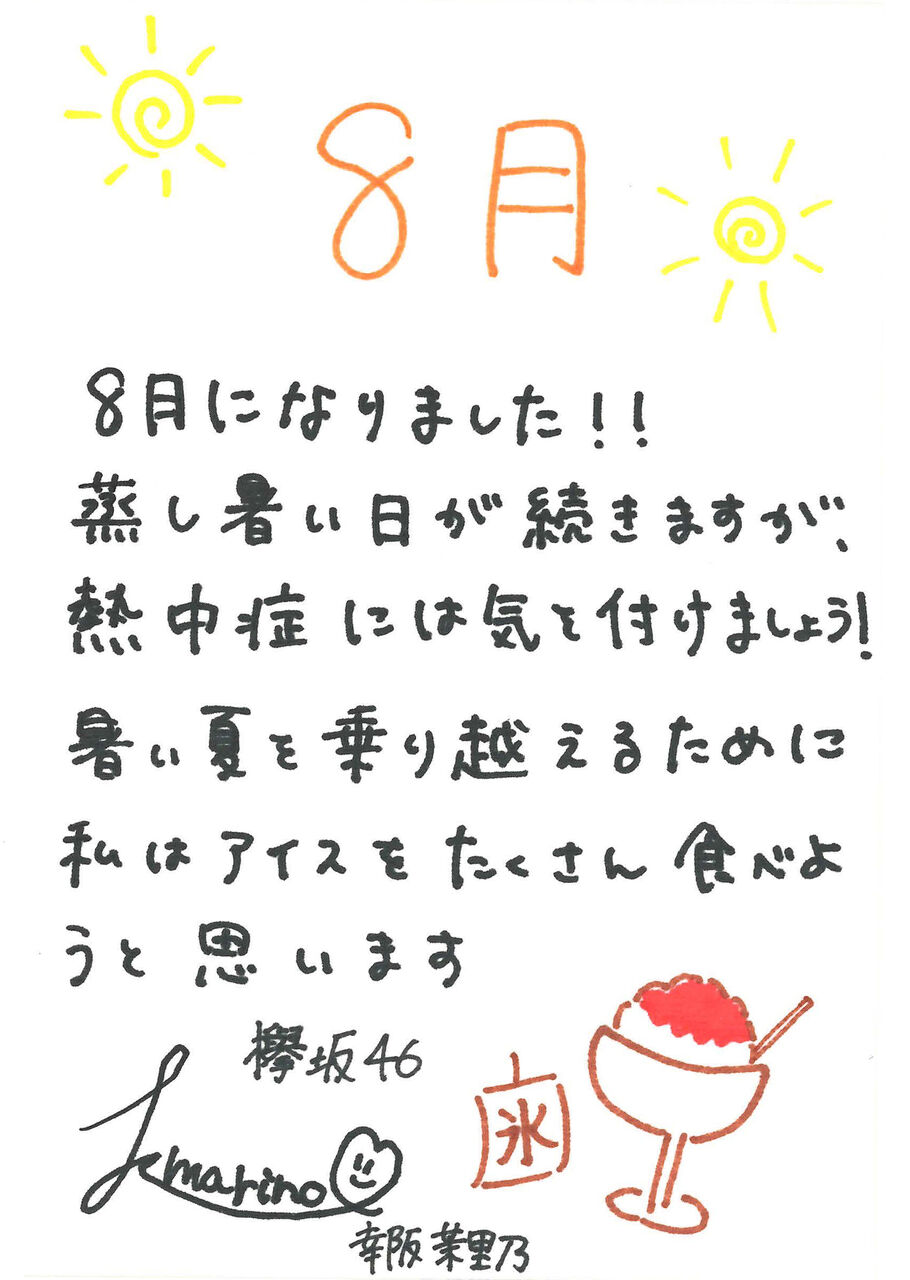 8月
8月になりました!!
蒸し暑い日が続きますが、
熱中症には気を付けましょう!
暑い夏を乗り越えるために
私はアイスをたくさん食べよ
うと思います
欅坂46
marino
氷
幸阪茉里乃